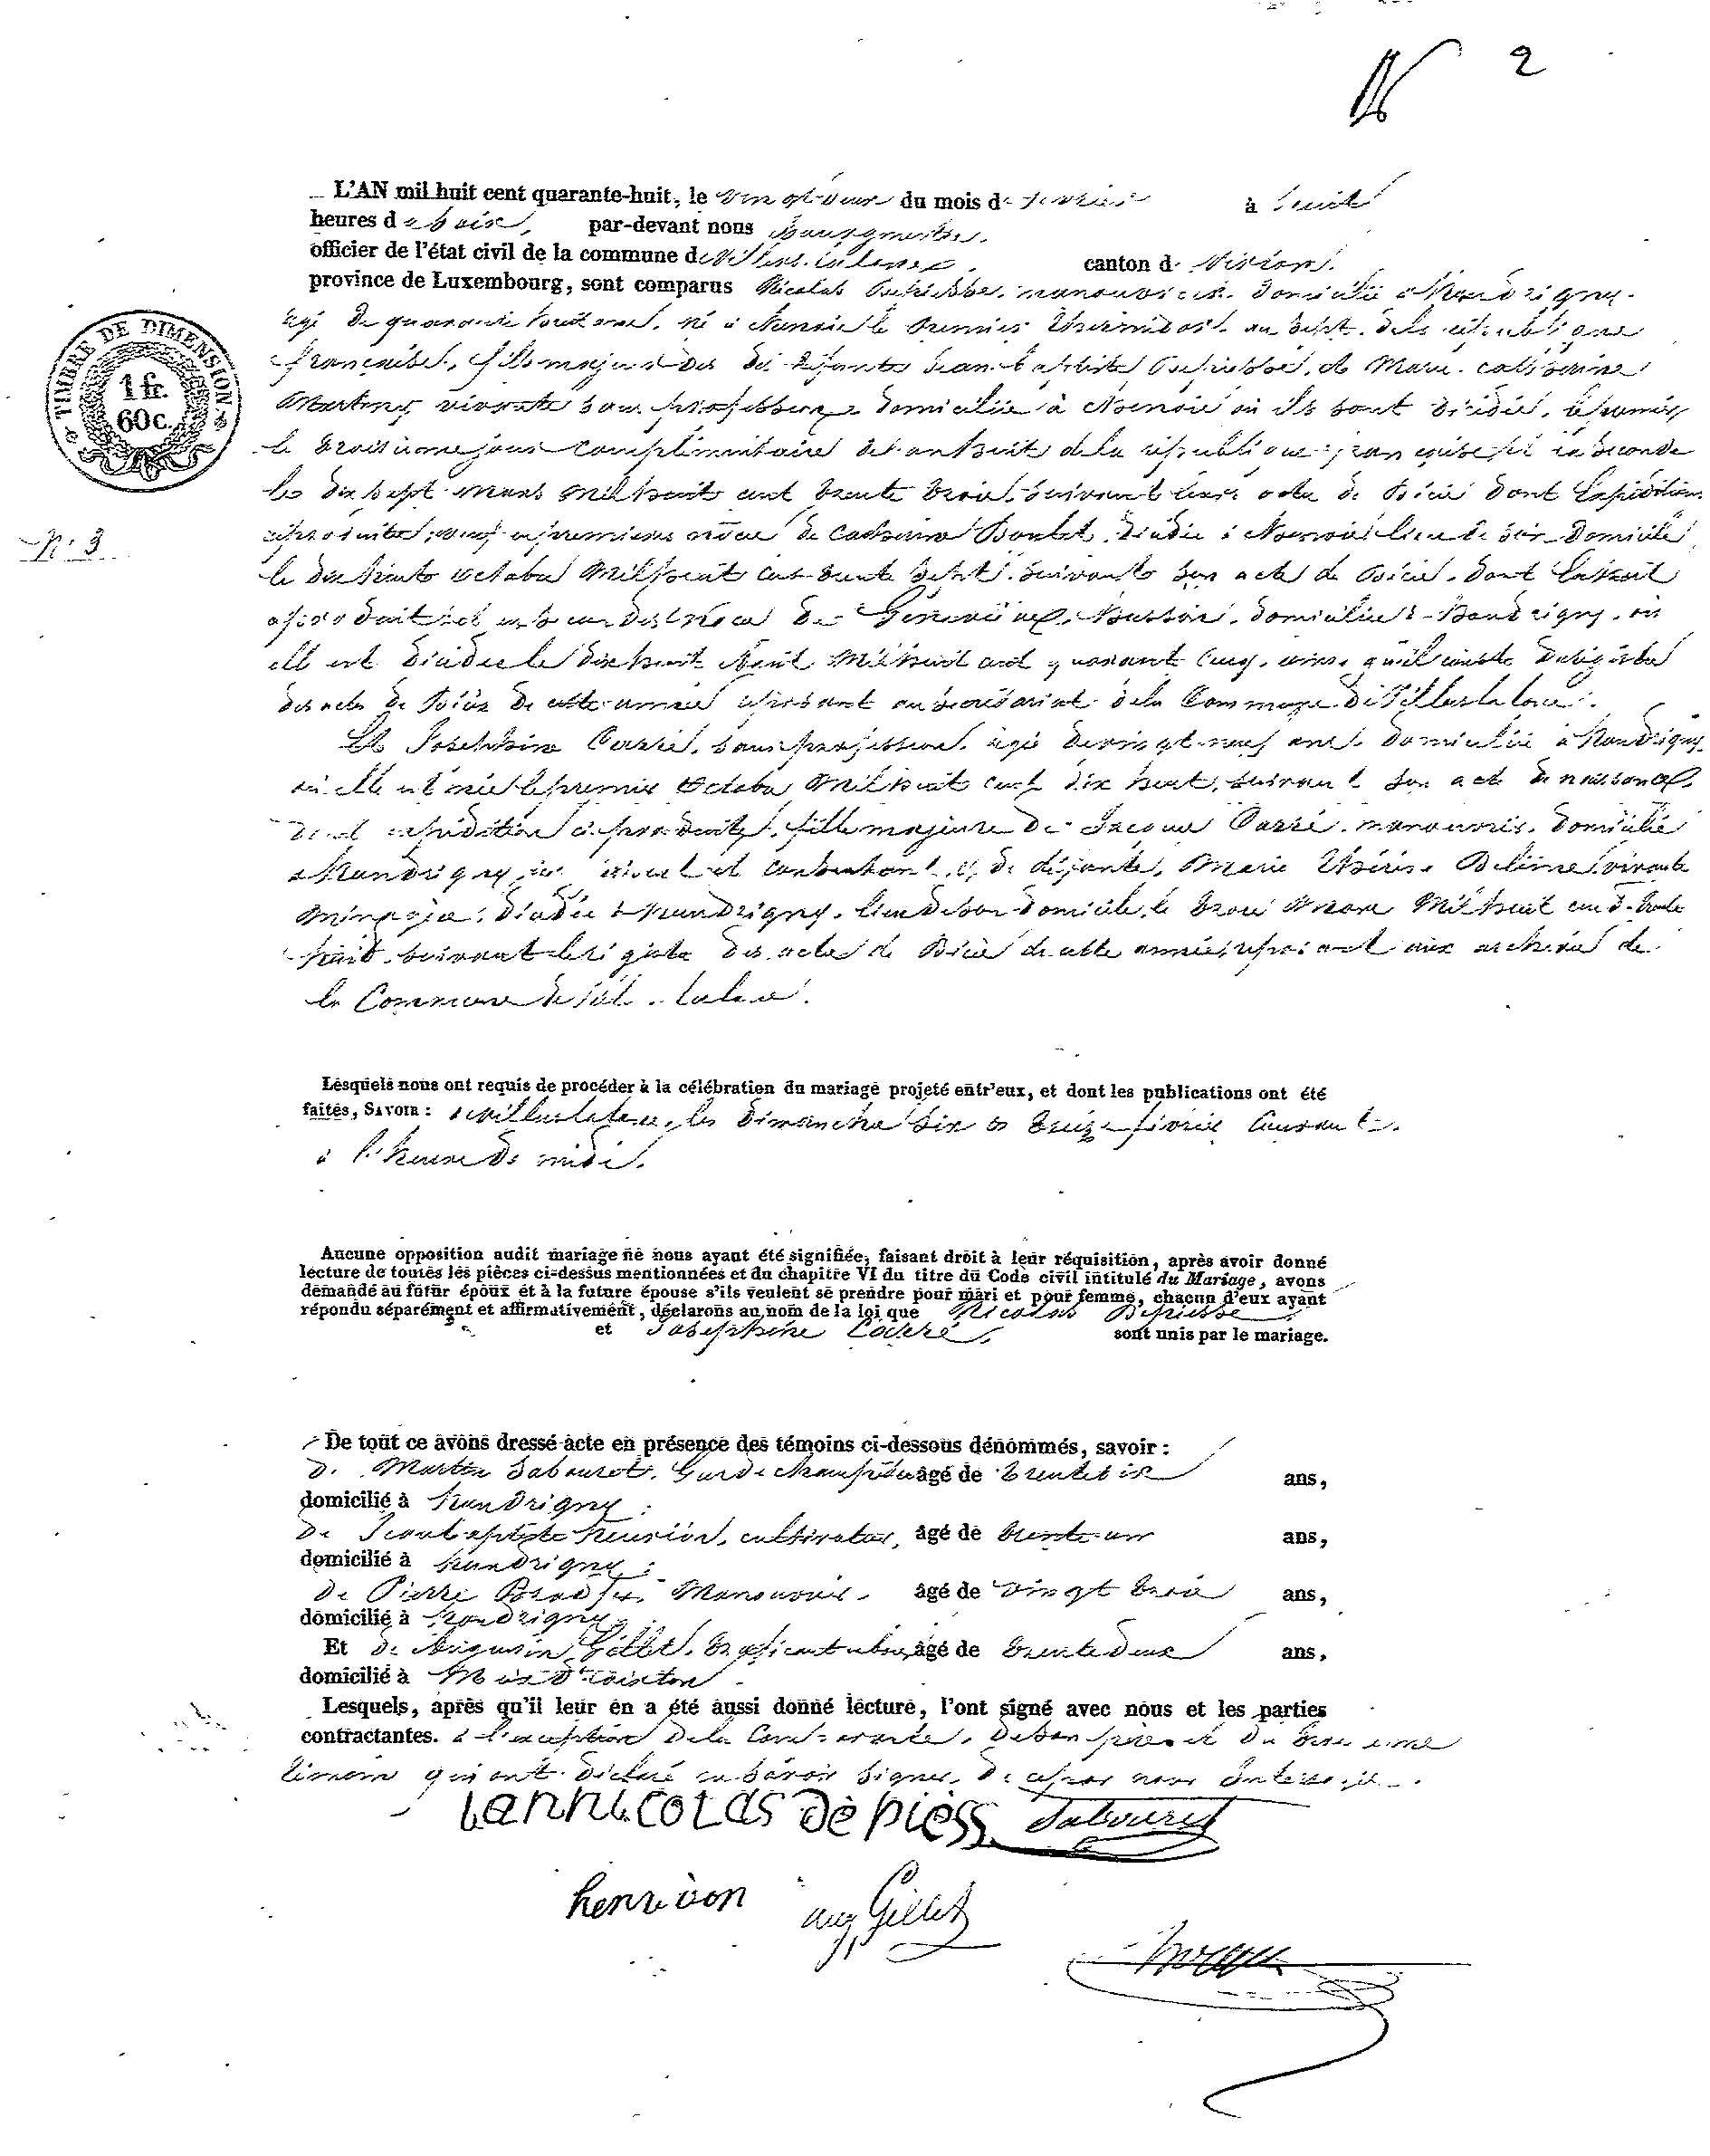 N 2
L'AN mil huit cent quarante-huit, le vingt-deux du mois de février à huit
heures du soir, par-devant nous Bourgmestre,
officier de l'état civil de la commune de Villers-la-loue, canton de Virton,
province de Luxembourg, sont comparus Nicolas Depiesse, manouvrier, domicilié à Houdrigny,
agé de quarante huit ans, né à le premier Thermidor an sept de la république
française, fils majeur des défunts Jean-baptiste Depiesse, et Marie Catherine
Martiny, vivants sans profession, domiciliés à où ils sont décédés, le premier
le troisième jour complémentaire de l'an huit de la république française et la seconde
le dix sept mars mil huit cent trente trois, suivant leurs actes de décès dont expédition
produite, veuf en premières noces de Catherine décédée à lieu de son domicile
le dix huit octobre mil huit cent trente sept, suivant son acte de décès, dont extrait
a produit, et en secondes noces de Geneviève domiciliée à Houdrigny, où
elle est décédée le dix huit Août mil huit cent quarante cinq, ainsi qu'il conste du registre
des actes de décès de cette année reposant au secrétariat de la Commune de Villers-la-loue.
Et Josephine Carré, sans profession, agée de vingt-neuf ans, domiciliée à Houdrigny,
où elle est née le premier octobre mil huit cent dix huit, suivant son acte de naissance
dont expédition a produite, fille majeure de Jacques Carré, manouvrier, domicilié
à Houdrigny, ici présent et consentant, et de défunte Marie Thérèse vivante
ménagère, décédée à Houdrigny, lieu de son domicile, le trois mars mil huit cent trente
huit, suivant le registre des actes de décès de cette année, reposant aux archives de
la Commune de Villers-la-loue.
TIMBRE DE DIMENSION
1 fr.
60 c.
N° 3
Lesquels nous ont requis de procéder à la célébration du mariage projeté entr'eux, et dont les publications ont été
faites, SAVOIR : à Villers-la-loue, les dimanches six et treize février courant
à l'heure de midi.
Aucune opposition audit mariage ne nous ayant été signifiée, faisant droit à leur réquisition, après avoir donné
lecture de toutes les pièces ci-dessus mentionnées et du chapitre VI du titre du Code civil intitulé du Mariage, avons
demandé au futur époux et à la future épouse s'ils veulent se prendre pour mari et pour femme, chacun d'eux ayant
répondu séparément et affirmativement, déclarons au nom de la loi que Nicolas Depiesse
et Josephine Carré, sont unis par le mariage.
De tout ce avons dressé acte en présence des témoins ci-dessous dénommés, savoir :
de Martin Sabouret, Garde champêtre âgé de trente six ans,
domicilié à Houdrigny ;
de Jean baptiste Henrion, cultivateur, âgé de trente un ans,
domicilié à Houdrigny ;
de Pierre Manouvrier, âgé de vingt trois ans,
domicilié à Houdrigny,
Et de Augustin Gillet, âgé de trente deux ans,
domicilié à
Lesquels, après qu'il leur en a été aussi donné lecture, l'ont signé avec nous et les parties
contractantes. à l'exception de la Contractante, de son père et du troisième
témoin qui ont déclaré ne savoir signer, de ce par nous
Jannicolas Dèpièss Sabouret
henrion aug Gillet